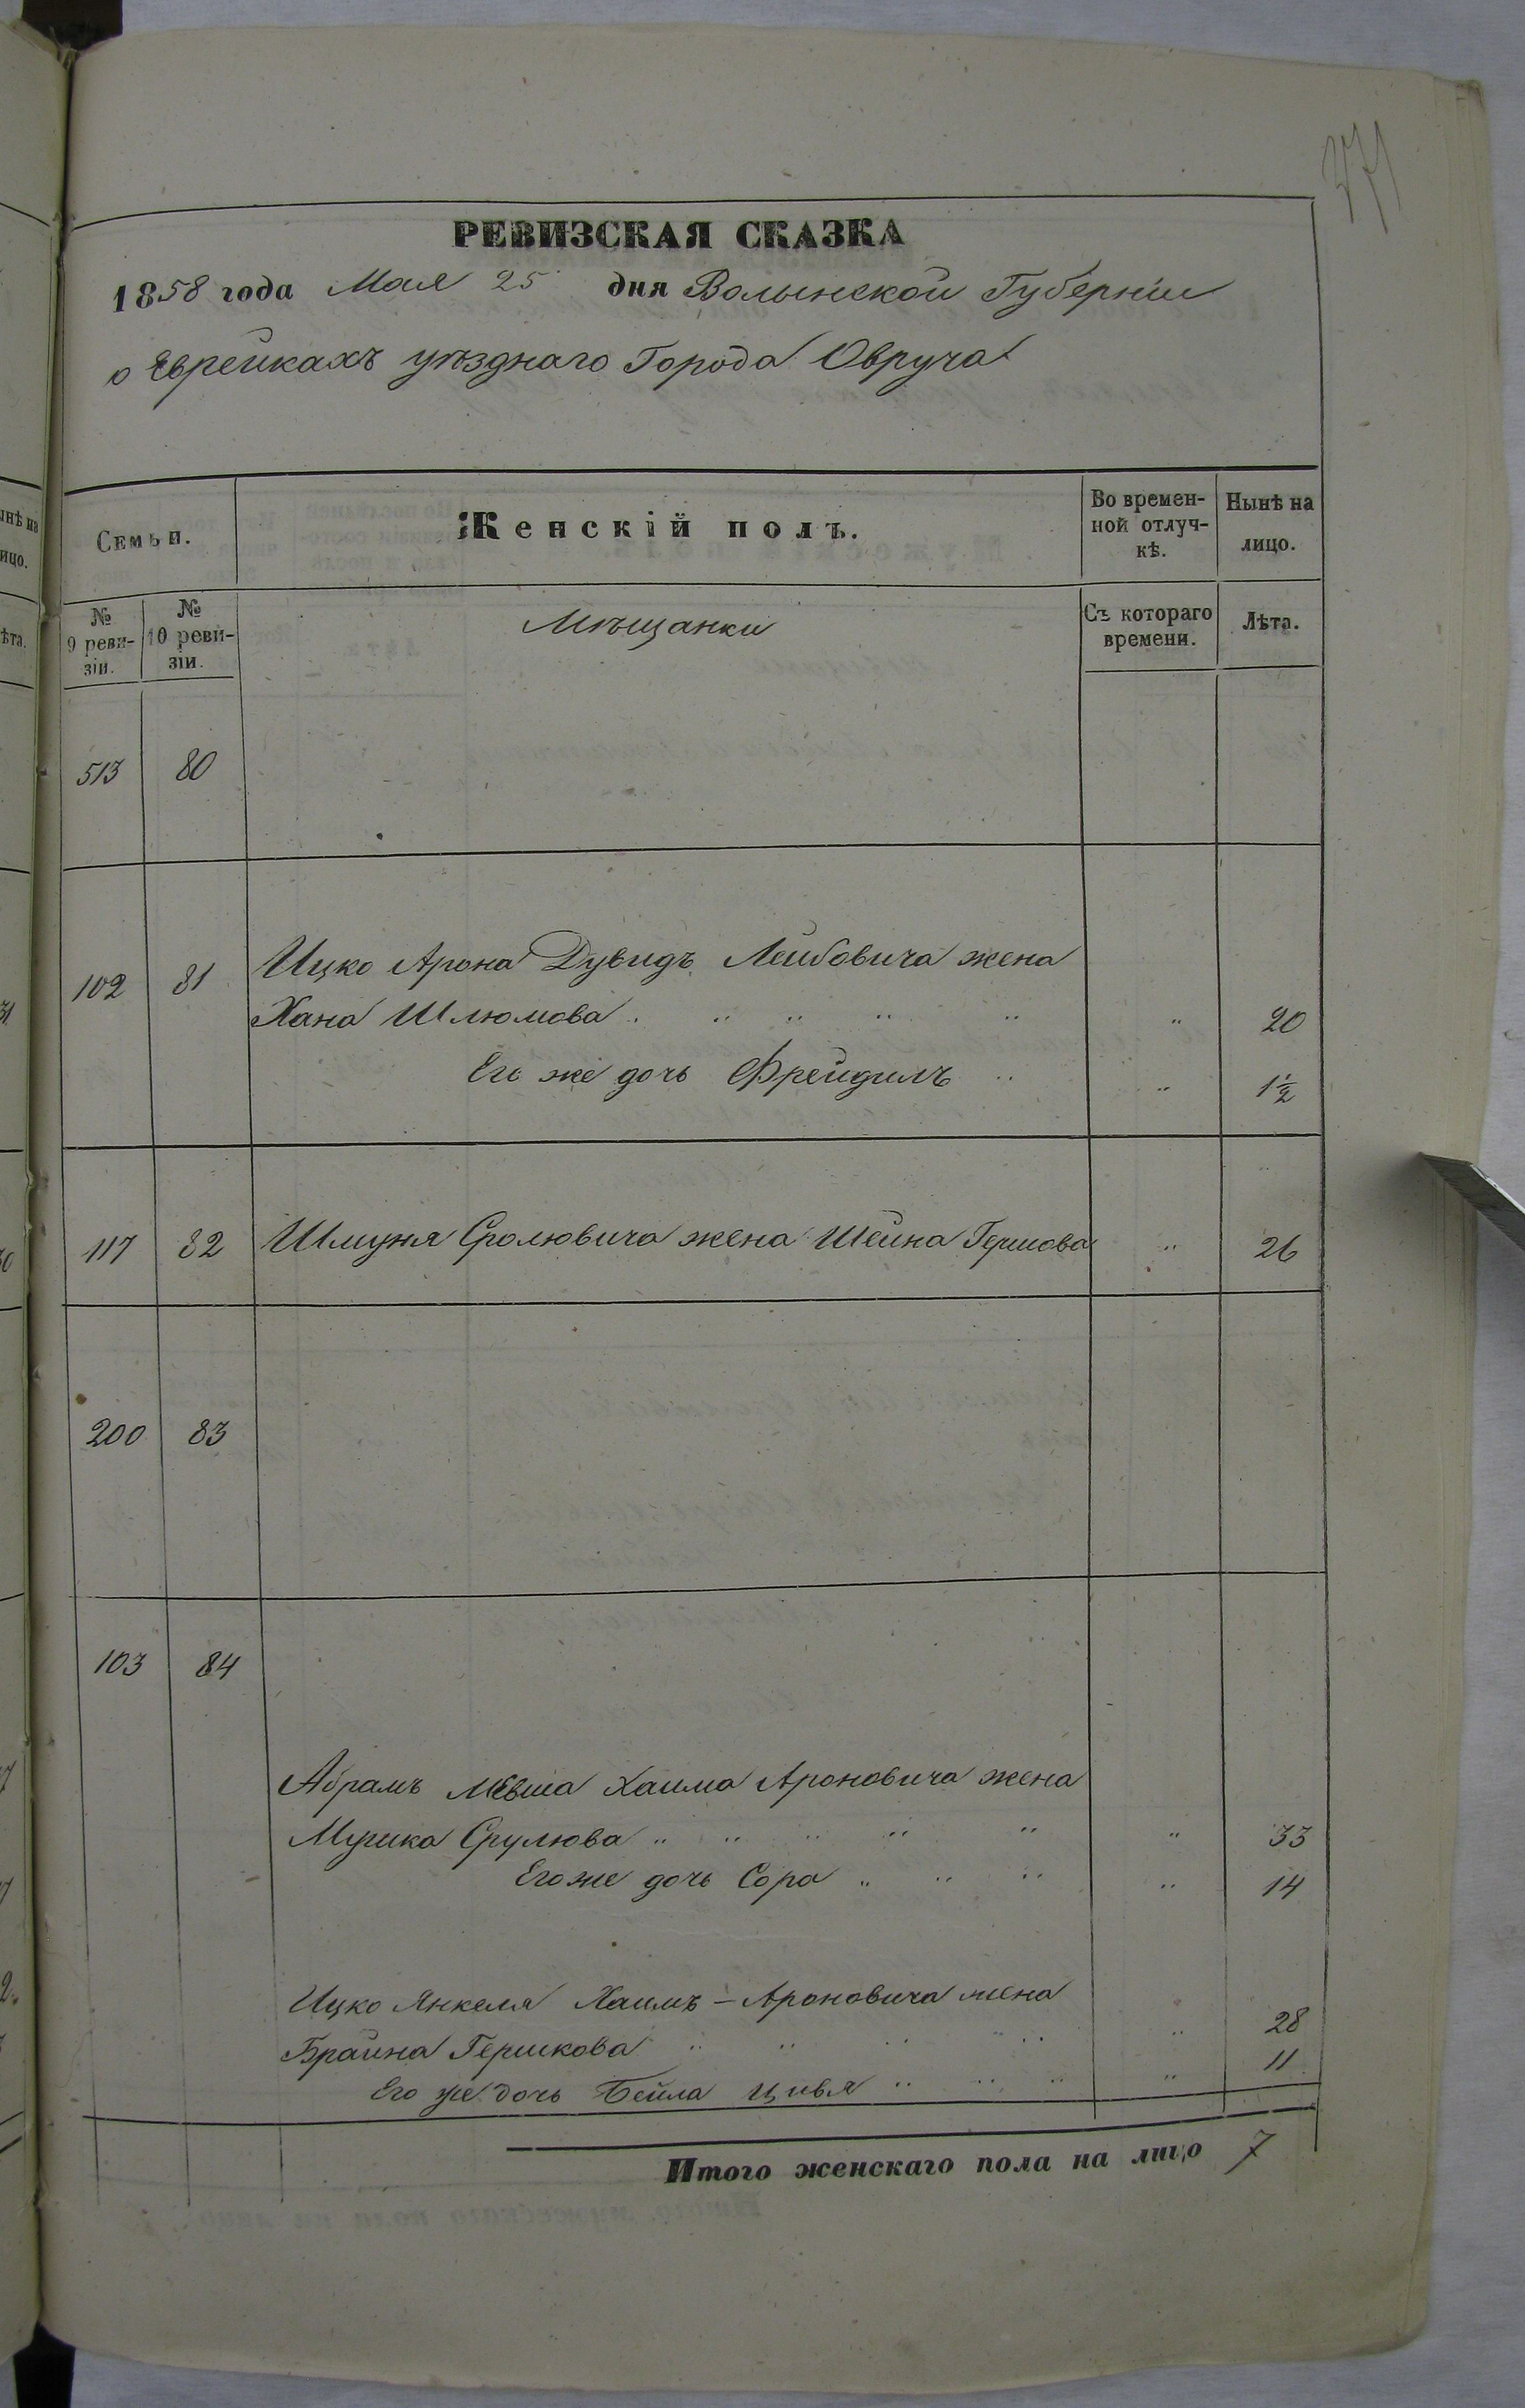 371
РЕВИЗСКАЯ СКАЗКА
1858 года Мая 25 дня Волынской Губерніи
о Еврейкахъ уѣзднаго Города Овруча
Семьи. Женскій полъ. Во времен-ной отлуч-кѣ. Нынѣ на лицо.
№ 9 реви-зіи. № 10 реви-зіи. Мѣщанки Съ котораго времени. Лѣта.
513 80
102 81 Ицко Арона Дувидъ Лейбовича жена
Хана Шлюмова . " " " " " 20
Его же дочь Фрейдилъ " " 1½
117 82 Шмуня Сролювича жена Шейна Гершова " 26
200 83
103 84
Абрамъ Мевша Хаима Ароновича жена
Срулюва " " " " " " 33
Его же дочь Сора " " " " 14
Ицко Янкеля Хаимъ-Ароновича жена
Брайна Гершкова " " " " " 28
Его же дочь Бейла Цивья " " " " 11
Итого женскаго пола на лицо 7